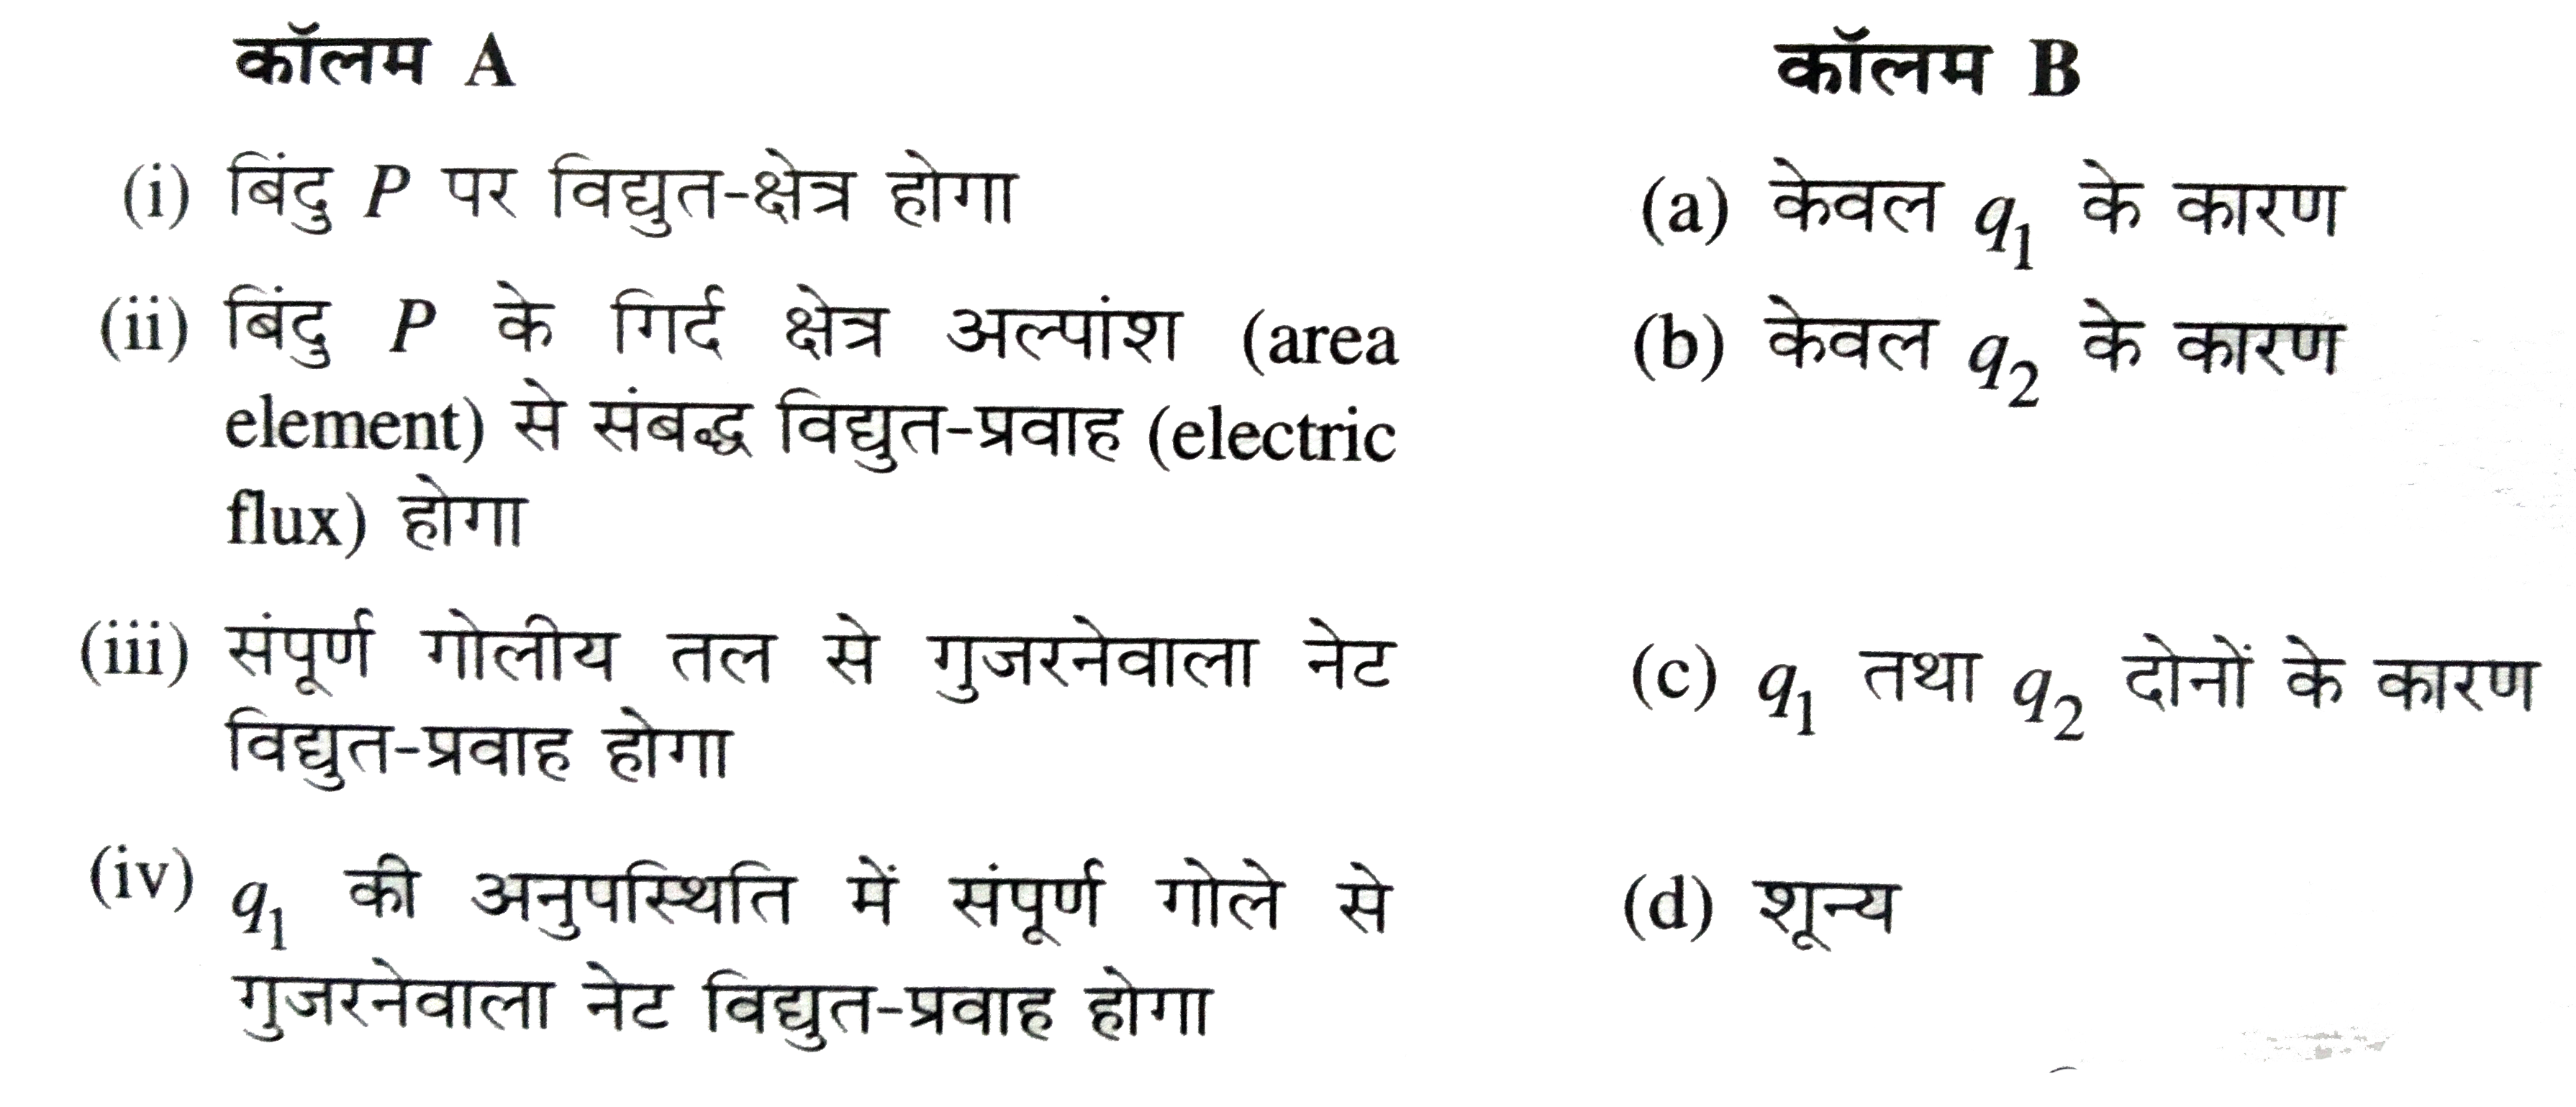 कॉलम A
कॉलम B
(i) बिंदु P पर विद्युत-क्षेत्र होगा
(a) केवल q1 के कारण
(ii) बिंदु P के गिर्द क्षेत्र अल्पांश (area
element) से संबद्ध विद्युत-प्रवाह (electric
flux) होगा
(b) केवल q2 के कारण
(iii) संपूर्ण गोलीय तल से गुजरनेवाला नेट
विद्युत-प्रवाह होगा
(c) q1 तथा q2 दोनों के कारण
(iv) q1 की अनुपस्थिति में संपूर्ण गोले से
गुजरनेवाला नेट विद्युत-प्रवाह होगा
(d) शून्य